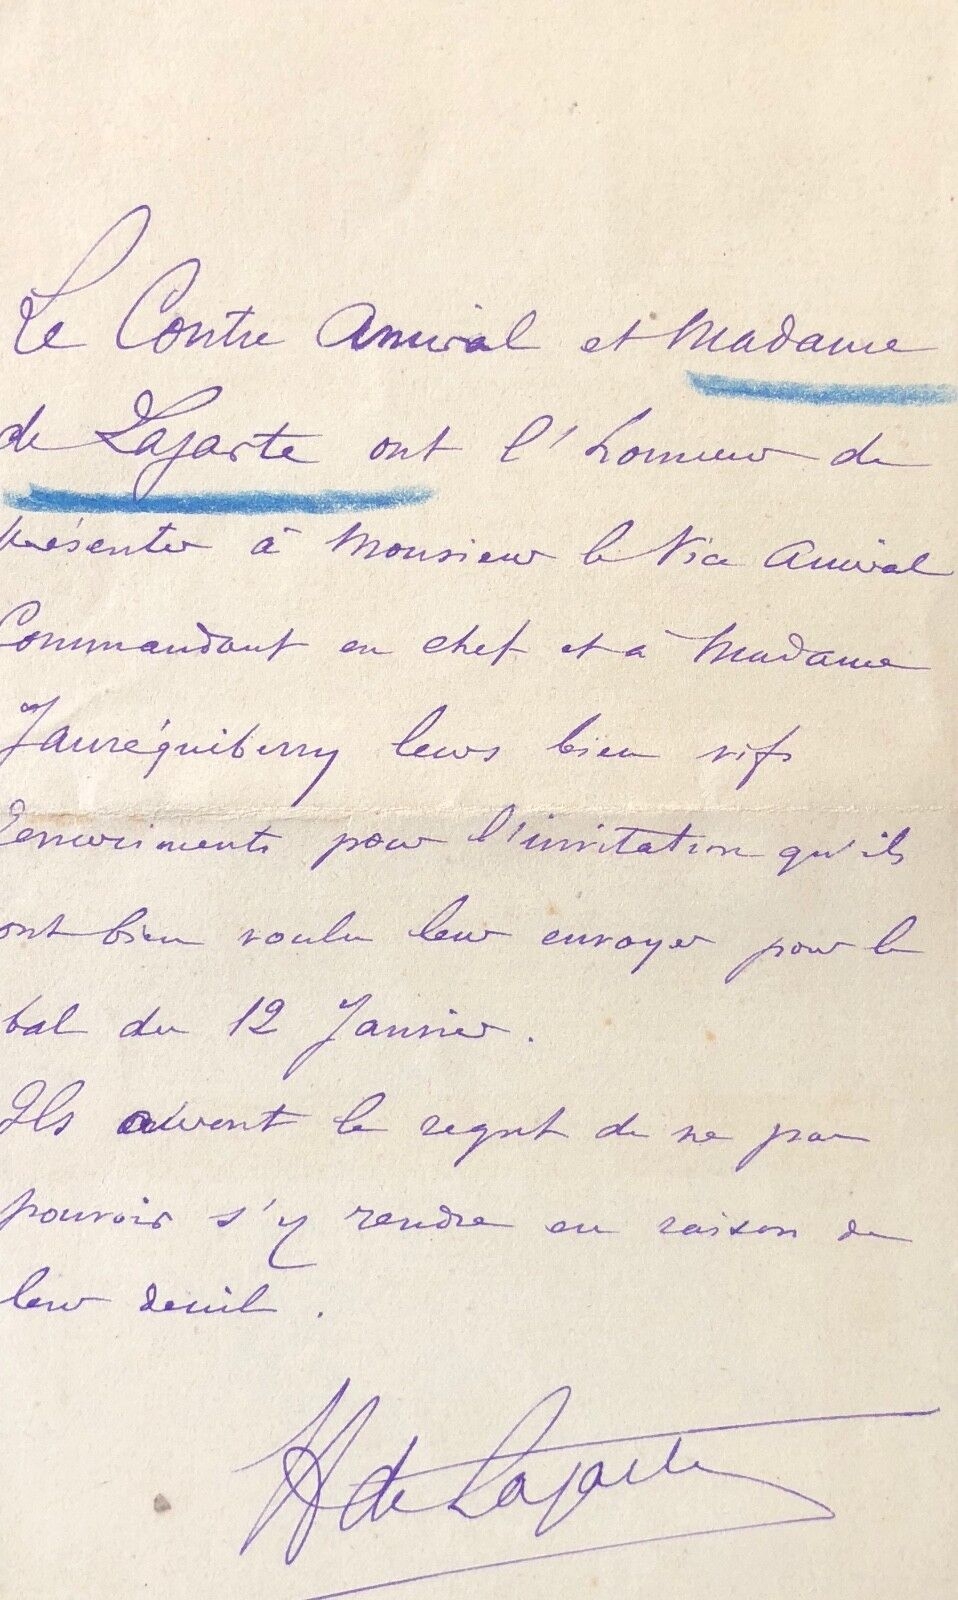 Le Contre Amiral et Madame
de Lajarte ont l'honneur de
présenter à Monsieur le Vice Amiral
Commandant en chef et à Madame
Jauréguiberry leurs bien vifs
remerciments pour l'invitation qu'ils
ont bien voulu leur envoyer pour le
bal du 12 Janvier.
Ils auront le regret de ne pas
pouvoir s'y rendre en raison de
leur deuil.
H de Lajarte